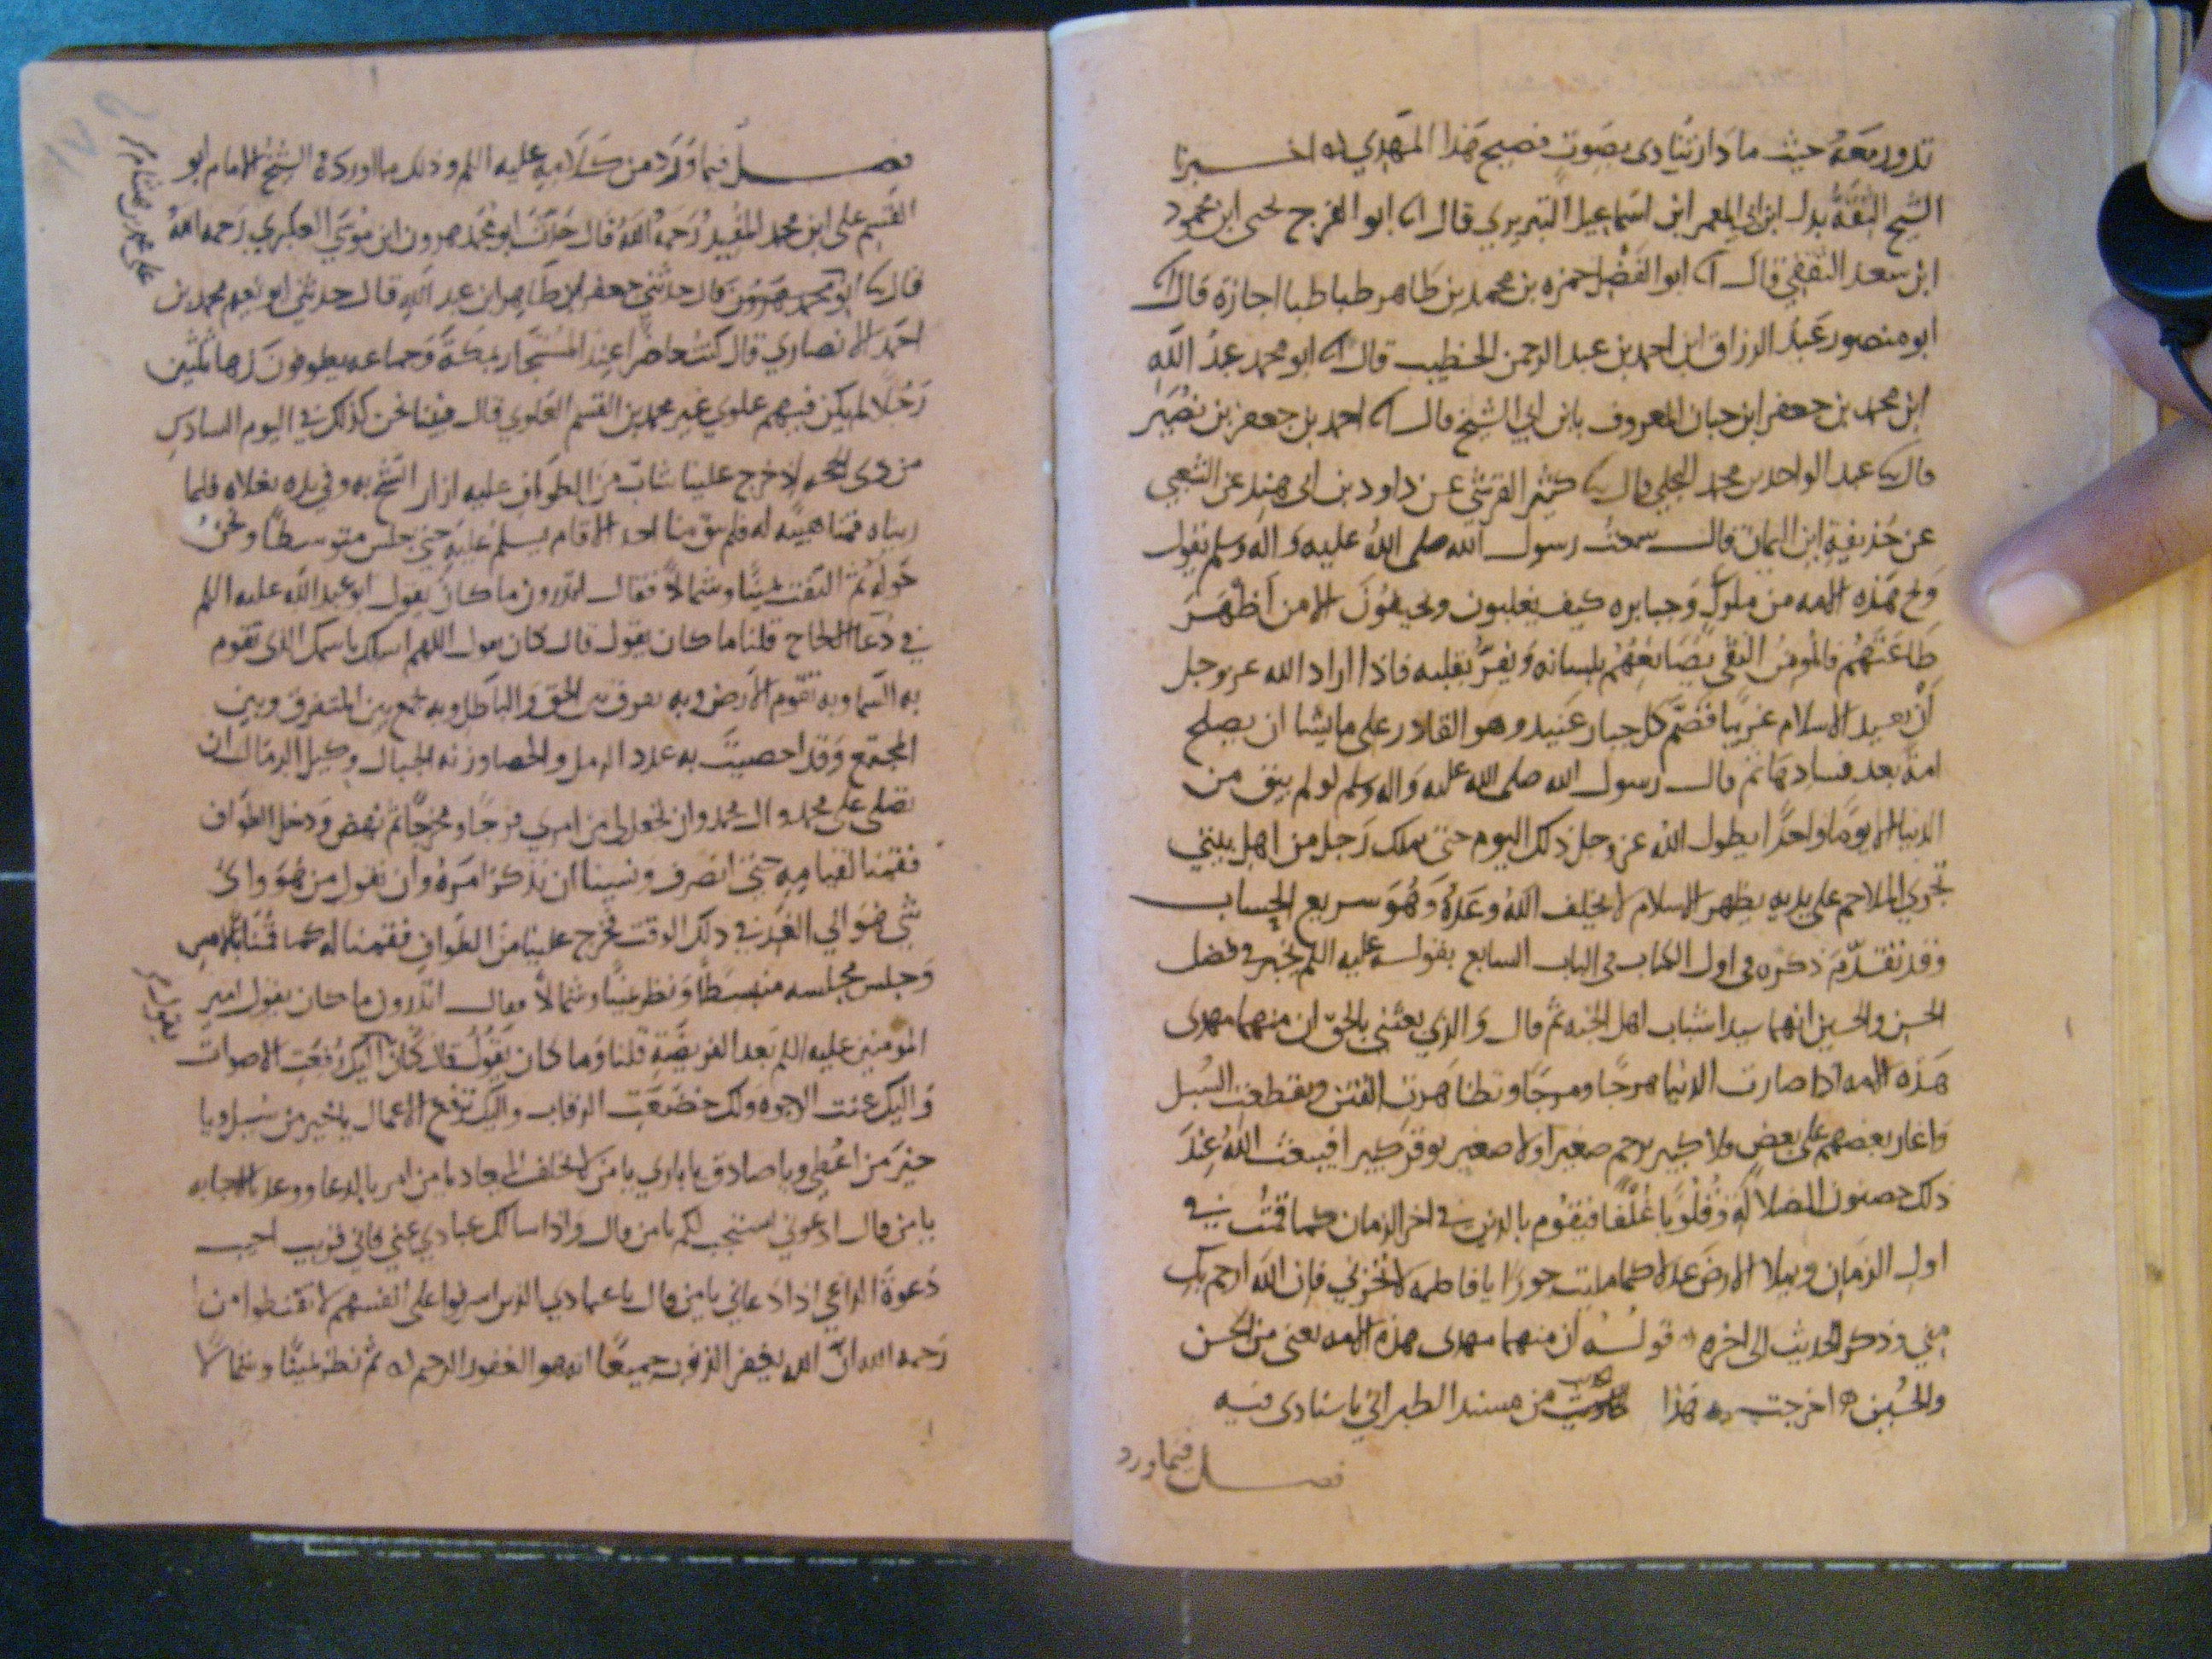 تدور معه حيث ما دار تنادى بصوت فصيح هذا المهدي اخبرنا
الشيخ الثقة بدل ابن ابي المعمر ابن اسماعيل التبريزي قال انا ابو الفرج يحيى ابن محمود
ابن سعد الثقفي قال انا ابو الفضل حمزه بن محمد بن طاهر طباطبا اجازة قال انا
ابو منصور عبد الرزاق ابن احمد بن عبد الرحمن الخطيب قال انا ابو محمد عبد الله
ابن محمد بن جعفر ابن حبان المعروف بابن ابي الشيخ قال انا احمد بن جعفر بن نصير
قال ثنا عبد الواحد بن محمد البجلي قال ثنا كثير القرشي عن داود بن ابى هند عن الشعبي
عن حذيفة ابن اليمان قال سمعت رسول الله صلى الله عليه واله وسلم يقول
ويح هذه الامه من ملوك وجبابره كيف يغلبون ويخيفون الا من اظهر
طاعتهم فالمومن التقي يصانعهم بلسانه ويفر بقلبه فاذا اراد الله عز وجل
أن يعيد الاسلام عزيزا قصم كل جبار عنيد وهو القادر على ما يشا ان يصلح
امة بعد فسادها ثم قال رسول الله صلى الله عليه واله وسلم لو لم يبق من
الدنيا الا يوما واحدا لطول الله عز وجل ذلك اليوم حتى يملك رجل من اهل بيتي
تجري الملاحم على يديه يظهر الاسلام لا يخلف الله وعده وهو سريع الحساب
وقد تقدم ذكره في اول الكتاب في الباب السابع بقوله عليه السلم في فضل
الحسن والحسين انهما سيدا شباب اهل الجنه ثم قال والذي بعثني بالحق ان منهما مهدى
هذه الامه اذا صارت الدنيا هرجا ومرجا وتظاهرت الفتن وتقطعت السبل
واغار بعضهم على بعض ولا كبير يرحم صغيرا ولا صغير يوقر كبيرا فيبعث الله عند
ذلك حصون الضلالة وقلوبا غلفا فيقوم بالدين في اخر الزمان كما قمت في
اول الزمان ويملا الارض عدلا كما مليت جورا يا فاطمه لا تحزني فان الله ارحم بك
مني وذكر الحديث الى اخره قوله ان منهما مهدى هذه الامه يعنى من الحسن
والحسين اخرجت هذا من مسند الطبراني باسنادى فيه
فصل فيما ورد
فصل فيما ورد من كلامه عليه السلم وذلك ما اورده الشيخ الامام ابو
القسم على ابن محمد المفيد رحمه الله قال حدثنا ابو محمد هرون ابن موسي العكبري رحمه الله
قال ثنا ابو محمد هرون قال حدثني جعفر ابن طاهر ابن عبد الله قال حدثني ابو نعيم محمد بن
احمد الانصاري قال كنت حاضرا عند المستجار بمكة وجماعه يطوفون زها ثلثين
رجلا لم يكن فيهم علوي غير محمد بن القسم العلوي قال فبينا نحن كذلك في اليوم السادس
من ذى الحجه اذ خرج علينا شاب من الطواف عليه ازار اتشح به وفي يده نعلاه فلما
رايناه قمنا هيبة له فلم يبق منا احد الا قام يسلم عليه حتى جلس متوسطا ونحن
حوله ثم التفت يمينا وشمالا فقال اتدرون ما كان يقول ابو عبد الله عليه السلم
في دعا الالحاح قلنا ما كان يقول قال كان يقول اللهم اسالك باسمك الذى تقوم
به السما وبه تقوم الارض وبه يفرق بين الحق والباطل وبه يجمع بين المتفرق وبين
المجتمع وقد احصيت به عدد الرمل والحصا وزنه الجبال وكيل الرمال ان
تصلي على محمد وال محمد وان تجعل لي من امري فرجا ومخرجا ثم نهض ودخل الطواف
فقمنا لقيامه حتى انصرف ونسينا ان نذكر امره وان نقول من هو واى
شي هو الي الغد في ذلك الوقت فخرج علينا من الطواف فقمنا له كما قمنا بالامس
وجلس مجلسه متوسطا ونظر يمينا وشمالا فقال اتدرون ما كان يقول امير
المومنين عليه السلم بعد الفريضة قلنا وما كان يقول قال كان اليك رفعت الاصوات
واليك عنت الاجوه ولك خضعت الرقاب واليك ترفع الاعمال يا خير من سيل ويا
خير من اعطى ويا صادق يا باري يا من لا يخلف الميعاد يا من امر بالدعا ووعد بالاجابه
يا من قال ادعوني استجب لكم يا من قال واذا سالك عبادي عني فاني قريب اجيب
دعوة الداعي اذا دعاني يا من قال يا عبادي الذين اسرفوا على انفسهم لا تقنطوا من
رحمه الله ان الله يغفر الذنوب جميعا انه هو الغفور الرحيم ثم نظر يمينا وشمالا